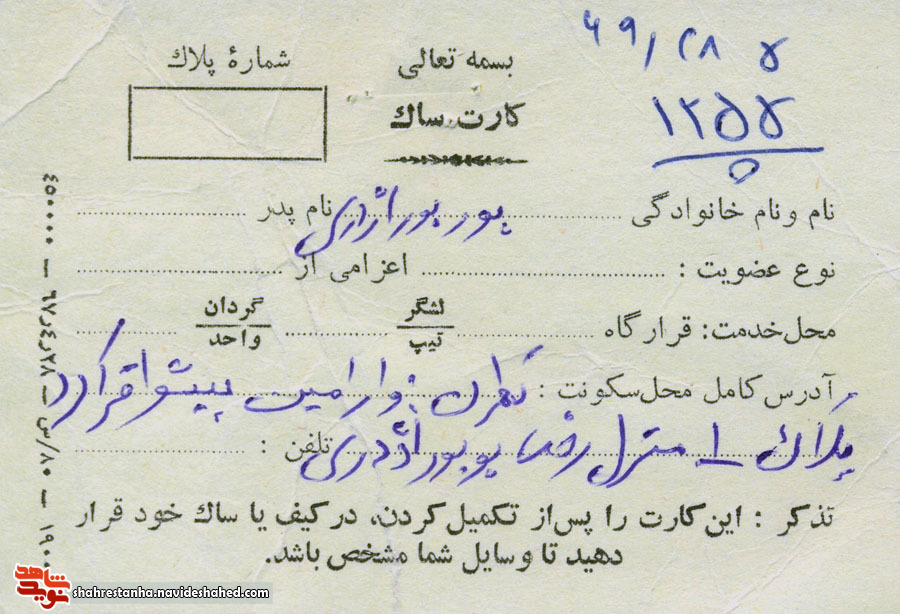 ۶۹/۲۸ ۵
۱۲۵۵
بسمه تعالی
شمارهٔ پلاک
کارت ساک
نام و نام خانوادگی پور بورآذاری نام پدر
نوع عضویت : اعزامی از
محل خدمت: قرارگاه لشگر تیپ گردان واحد
آدرس کامل محل سکونت : تهران ورامین پیشوا
پلاک ۱ منزل رضا تلفن :
تذکر : این کارت را پس‌از تکمیل کردن، در کیف یا ساک خود قرار
دهید تا وسایل شما مشخص باشد.
۴۵۰۰۰۰ – ۶۷ر۴ر۲۸ – ۸۰/س – ۱۹۰۰
نوید شاهد
shahrestanha.navideshahed.com